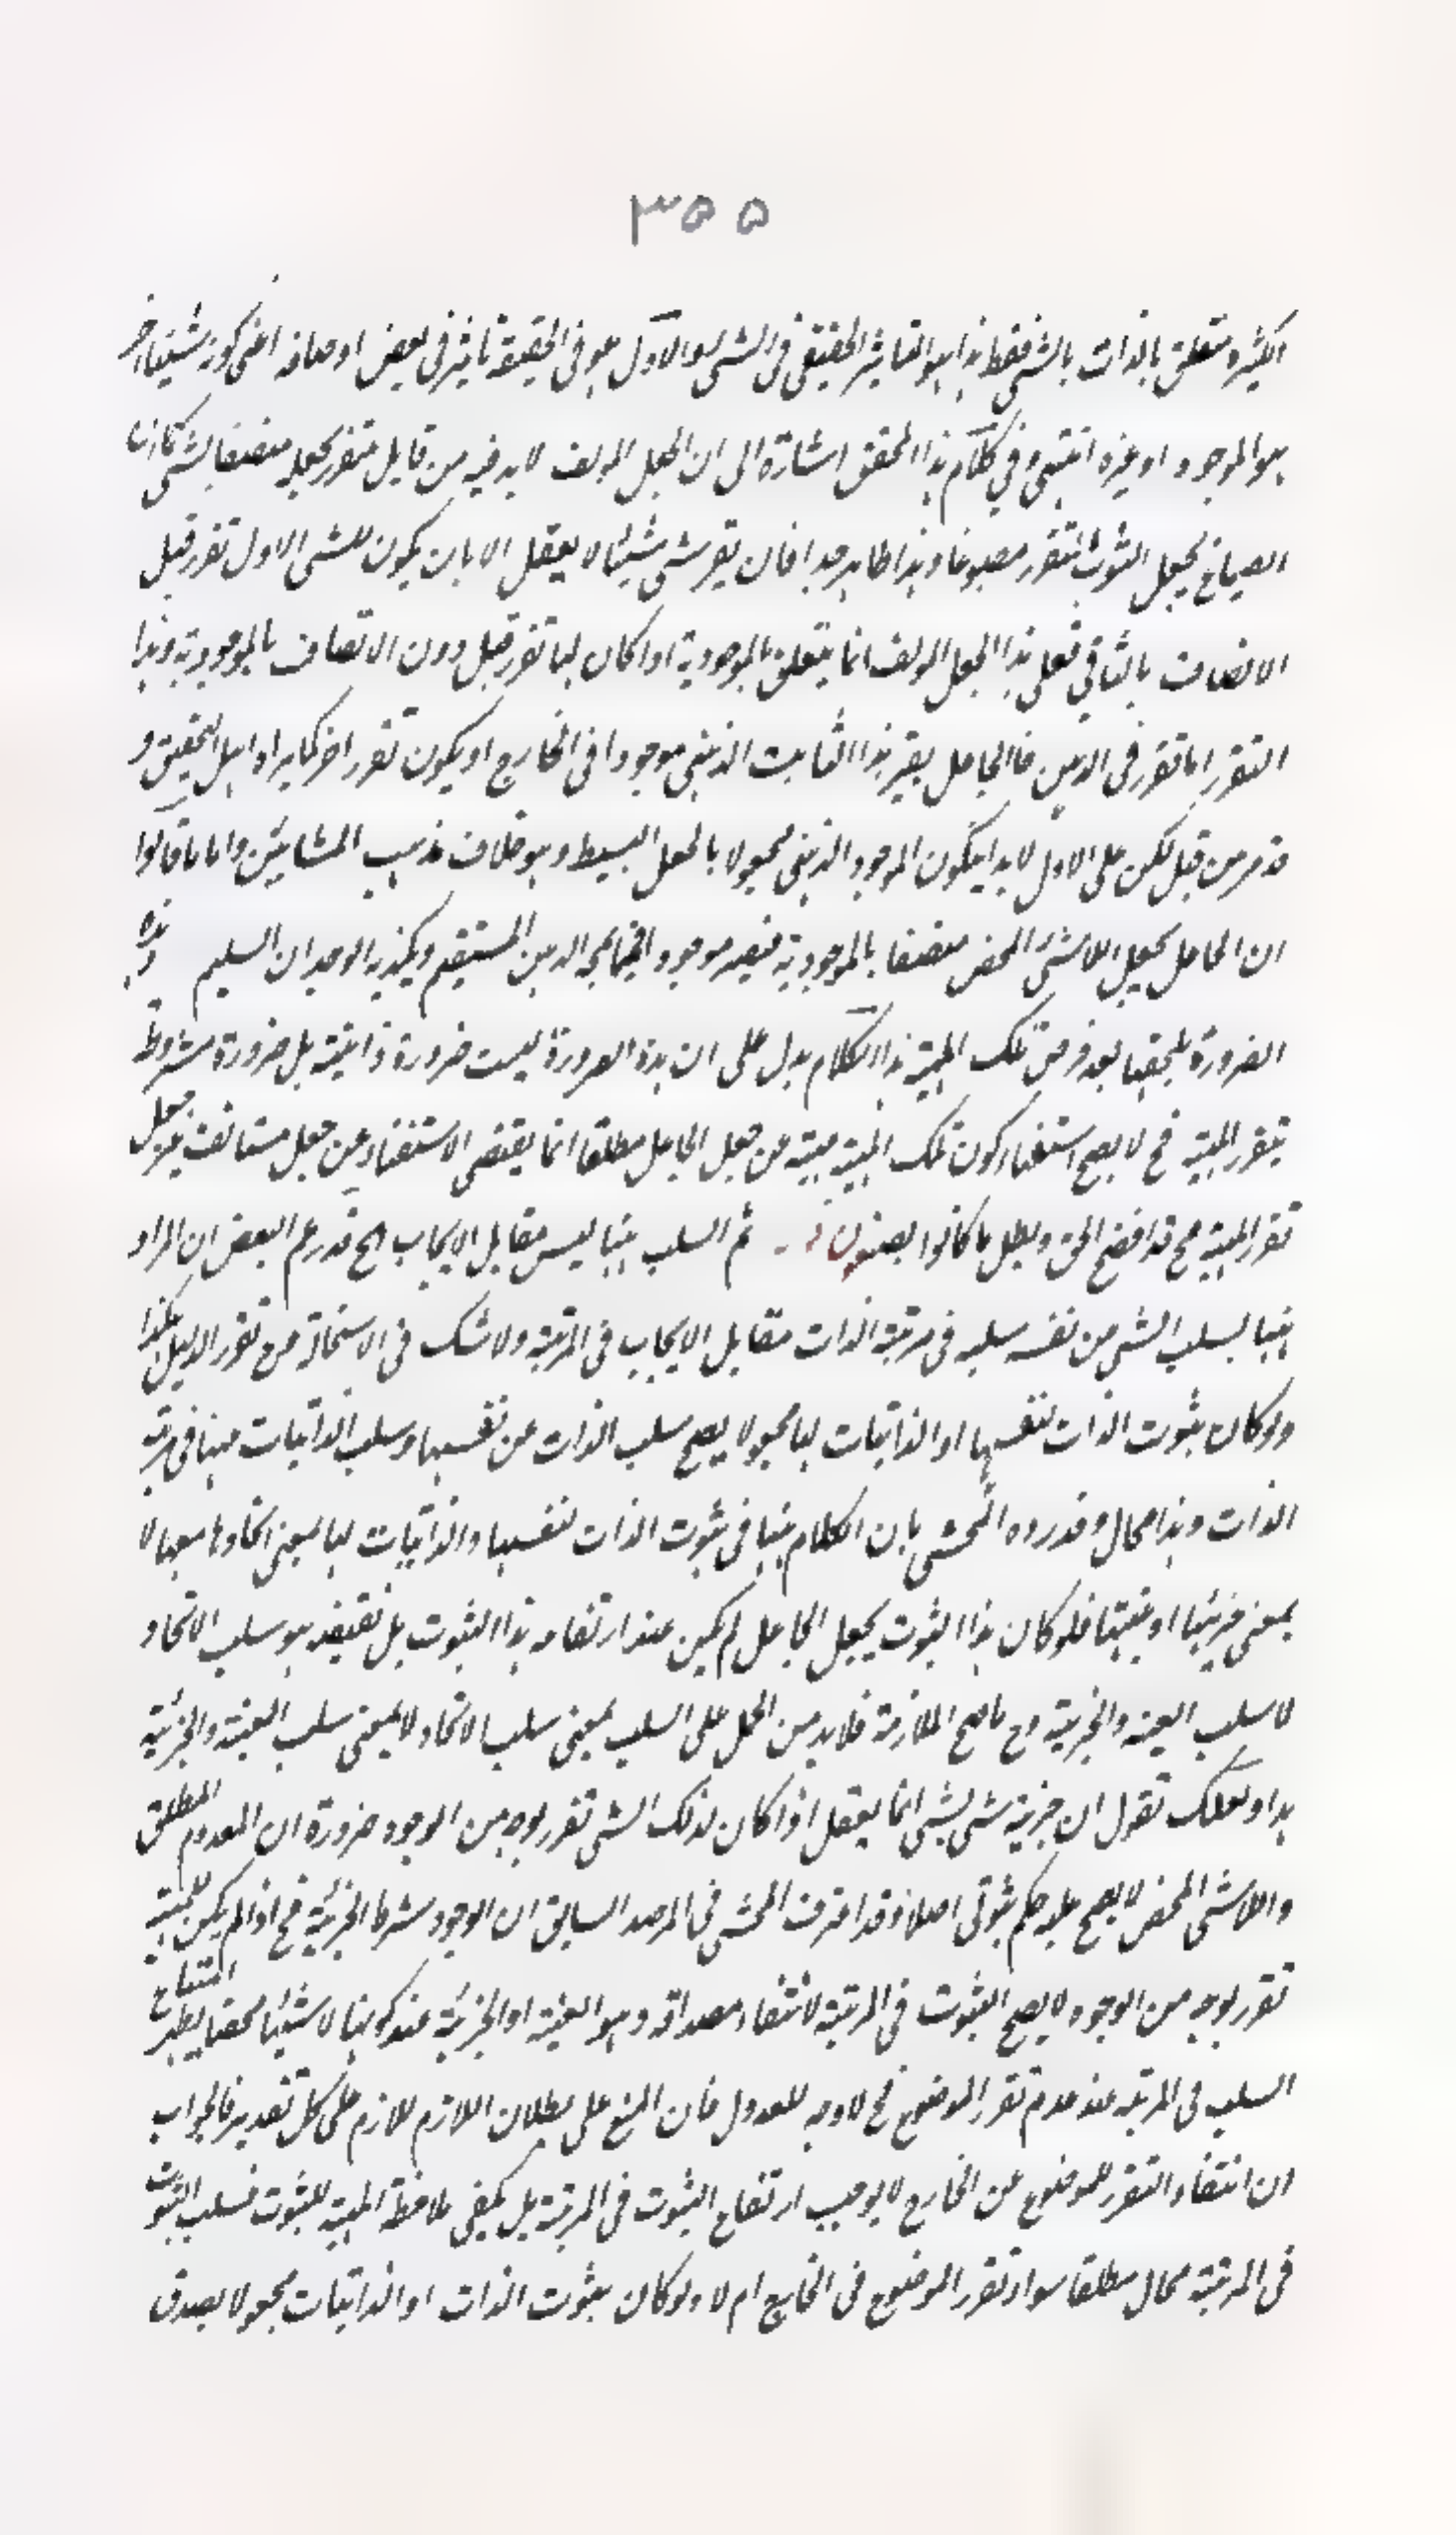 ٣٥٥
اكثيره متعلق بالذات بالشى فقط هذا هو التاثير الحقيقى فى الشى و الاول هو فى الحقيقة تاثير فى بعض اوصافه اعنى كونه شيئا اخر
هو الموجود او غيره انتهى و فى كلام هذا المحقق اشارة الى ان الجعل المولف لا بد فيه من قابل متقرر يجعله متصفا بشى كما ان
الصباغ يجعل الثوب المتقرر مصبوغا و هذا ظاهر جدا فان تقرر شى شيئا لا يعقل الا بان يكون للشى الاول تقرر قبل
الاتصاف بالثانى فعلى هذا الجعل المولف انما يتعلق بالموجودية اذا كان لها تقرر قبل دون الاتصاف بالموجودية و هذا
التقرر اما تقرر فى الذهن فالجاعل يقرر هذا الثابت الذهنى موجودا فى الخارج او يكون تقرر اخر كما يراه اهل التحقيق و
قد مر من قبل لكن على الاول لا بد ان يكون الموجود الذهنى مجعولا بالجعل البسيط و هو خلاف مذهب المشائين و اما ما قالوا
ان الجاعل يجعل اللاشئ المحض متصفا بالموجودية فيصير موجودا فيمجه الذهن المستقيم و يكذبه الوجدان السليم و هذه
الضرورة يلحقها بعد فرض تلك المهية هذا الكلام يدل على ان هذه الضرورة ليست ضرورة ذاتية بل ضرورة مشروطة
بتقرر المهية فح لا يصح استغناء كون تلك المهية مهية عن جعل الجاعل مطلقا انما يقتضى الاستغناء عن جعل مستانف غير جعل
تقرر المهية فح قد اتضح الحق و بطل ما كانوا يصنعون ثم السلب هنا ليس مقابل الايجاب الخ قد زعم البعض ان المراد
هنا بسلب الشى من نفسه سلبه فى مرتبة الذات مقابل الايجاب فى المرتبة و لا شك فى الاستحالة من تقرر الدليل هكذا
و لو كان ثبوت الذات لنفسها او الذاتيات لها مجعولا يصح سلب الذات عن نفسها و سلب الذاتيات عنها فى مرتبة
الذات و هذا محال و قد رده المحشى بان الكلام هنا فى ثبوت الذات لنفسها و الذاتيات لها بمعنى اتحادها معها لا
بمعنى جزئيتها او عينيتها فلو كان هذا الثبوت بجعل الجاعل لم يكن عند ارتفاعه هذا الثبوت بل نقيضه هو سلب الاتحاد
لا سلب العينية و الجزئية و ح ما صح الملازمة فلا بد من الحمل على السلب بمعنى سلب الاتحاد لا بمعنى سلب العينية و الجزئية
هذا و لعلك تقول ان جزئية شى لشى انما يعقل اذا كان لذلك الشى تقرر بوجه من الوجوه ضرورة ان المعدوم المطلق
و اللاشى المحض لا يصح عليه حكم ثبوتى اصلا و قد اعترف المحشى فى المرصد السابق ان الوجود شرط الجزئية فح اذا لم يكن للمهية
تقرر بوجه من الوجوه لا يصح الثبوت فى المرتبة لانتفاء مصداقه و هو العينية او الجزئية عند كونها لا شيئا محضا يظهر امتناع
السلب فى المرتبة عند عدم تقرر الموضوع فح لا وجه للعدول فان المنع على بطلان اللازم لازم على كل تقدير فالجواب
ان انتفاء التقرر للموضوع عن الخارج لا يوجب ارتفاع الثبوت فى المرتبة بل يكفى ملاحظة المهية للثبوت فسلب الثبوت
فى المرتبة محال مطلقا سواء تقرر الموضوع فى الخارج ام لا و لو كان ثبوت الذات او الذاتيات مجعولا يصدق